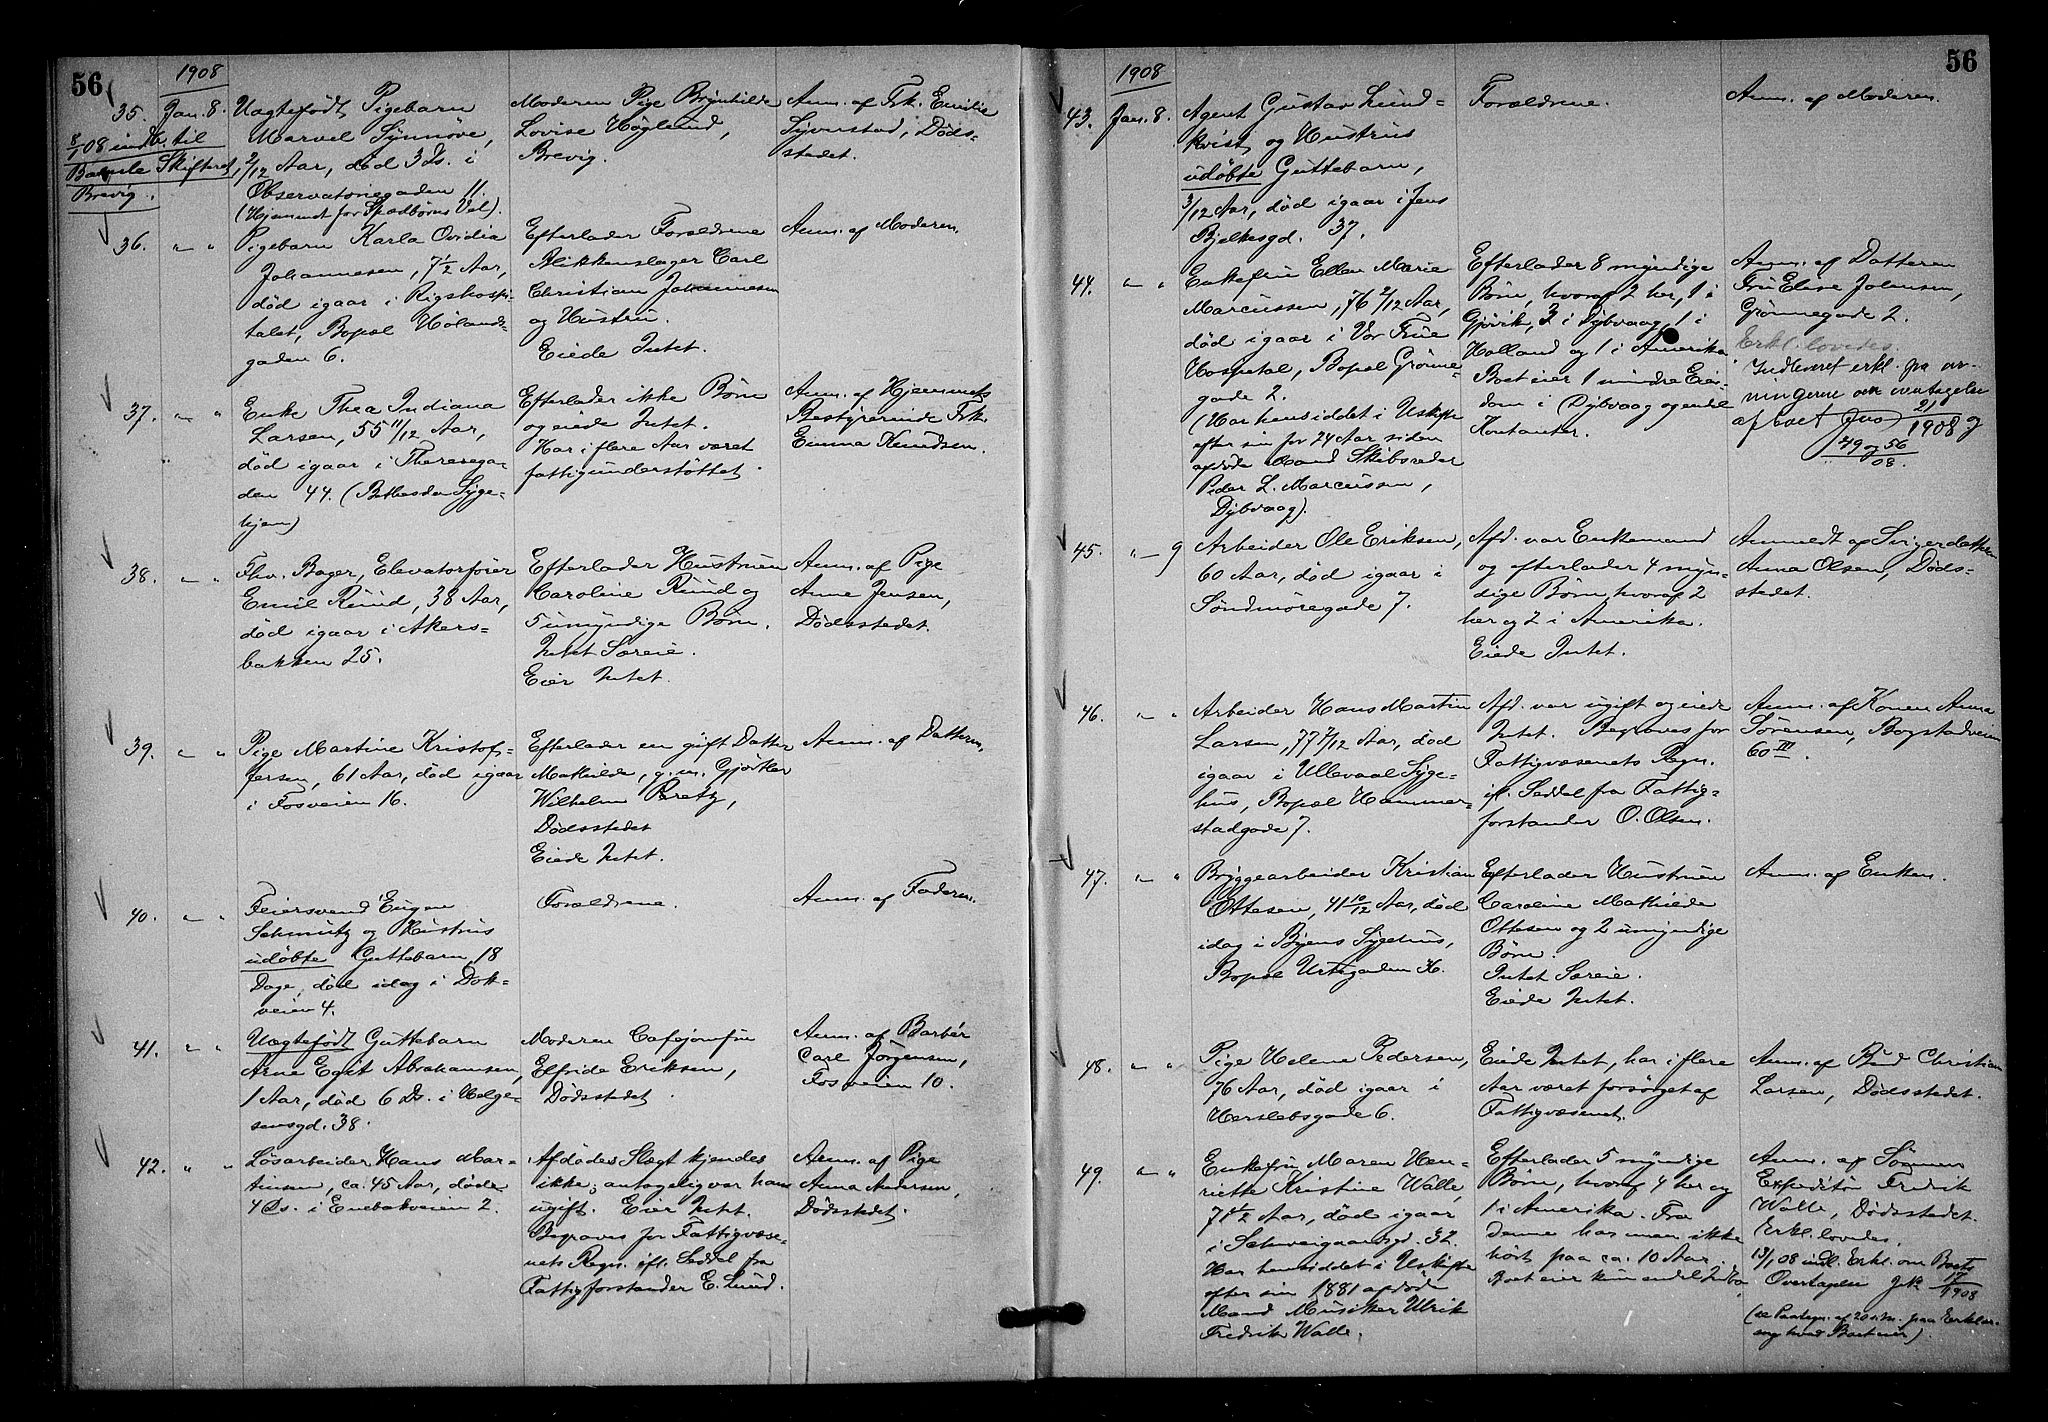 56
1908
35. Jan. 8.
8/1 08 indb. til
Bamle Skifteret,
Brevig.
Uægtefødt Pigebarn
Marvel Synnøve,
2/12 Aar, død 3 ds. i
Observatoriegaden 11.
(Hjemmet for Spædbørns Vel).
Moderen Pige Brynhilde
Lovise Høglund,
Brevig.
Anm. af Frk. Emilie
Syverstad, Døds-
stedet.
36. " "
Pigebarn Karla Ovidia
Johannesen, 7 1/2 Aar,
død igaar i Rigshospi-
talet, Bopæl Hølands-
gaden 6.
Efterlader Forældrene
Blikkenslager Carl
Christian Johannesen
og Hustru.
Eiede Intet.
Anm. af Moderen.
37. " "
Enke Thea Indiana
Larsen, 55 11/12 Aar,
død igaar i Theresega-
den 44. (Bethesda Syge-
hjem)
Efterlader ikke Børn
og eiede Intet.
Har i flere Aar været
fattigunderstøttet.
Anm. af Hjemmets
Bestyrerinde Frk.
Emma Knudsen.
38. " "
Fhv. Bager, Elevatorfører
Emil Ruud, 38 Aar,
død igaar i Akers-
bakken 25.
Efterlader Hustruen
Caroline Ruud og
5 umyndige Børn.
Intet Særeie.
Eier Intet.
Anm. af Pige
Anne Jensen,
Dødsstedet.
39. " "
Pige Martine Kristof-
fersen, 61 Aar, død igaar
i Fosveien 16.
Efterlader en gift Datter
Mathilde, g. m. Gjørtler
Wilhelm Paretz,
Dødsstedet
Eiede Intet.
Anm. af Datteren.
40. " "
Feiersvend Eugen
Schmutz og Hustrus
udøbte Guttebarn, 18
Dage, død idag i Dok-
veien 4.
Forældrene.
Anm. af Faderen.
41. " "
Uægtefødt Guttebarn
Arne Egil Abrahamsen,
1 Aar, død 6 ds. i Helge-
sensgd. 38.
Moderen Cafejomfru
Elfride Eriksen,
Dødsstedet.
Anm. af Barbér
Carl Jørgensen,
Fosveien 10.
42. " "
Løsarbeider Hans Mar-
tinsen, ca. 45 Aar, døde
4 ds. i Enebakveien 2.
Afdødes Slægt kjendes
ikke; antagelig var han
ugift. Eier Intet.
Begraves for Fattigvæse-
nets Regn. ifl. Seddel fra
Fattigforstander E. Lund.
Anm. af Pige
Anna Andersen,
Dødsstedet.
56
1908
43. Jan. 8.
Agent Gustav Lund-
kvist og Hustrus
udøbte Guttebarn,
3/12 Aar, død igaar i Jens
Bjelkesgd. 37.
Forældrene.
Anm. af Moderen.
44. " "
Enkefru Ellen Marie
Marcussen, 76 2/12 Aar,
død igaar i Vor Frue
Hospital, Bopæl Grønne-
gade 2.
(Har hensiddet i Uskifte
efter sin for 24 Aar siden
afdøde Mand Skibsreder
Peder L. Marcussen,
Dybvaag).
Efterlader 8 myndige
Børn, hvoraf 2 her, 1 i
Gjøvik, 3 i Dybvaag, 1 i
Holland og 1 i Amerika.
Boet eier 1 mindre Eien-
dom i Dybvaag og endel
Kontanter.
Anm. af Datteren
Fru Elise Johansen,
Grønnegade 2.
Erkl. lovedes.
Indleveret erkl. fra ar-
vingerne om overtagelse
af boet 21/1908 og
49 og 56/08.
45. " 9
Arbeider Ole Eriksen,
60 Aar, død igaar i
Søndmøregade 7.
Afd. var Enkemand
og efterlader 4 myn-
dige Børn, hvoraf 2
her og 2 i Amerika.
Eiede Intet.
Anmeldt af Svigerdatteren
Anna Olsen, Døds-
stedet.
46. " "
Arbeider Hans Martin
Larsen, 77 7/12 Aar, død
igaar i Ullevaal Syge-
hus, Bopæl Hammer-
stadgade 7.
Afd. var ugift og eiede
Intet. Begraves for
Fattigvæsenets Regn.
ifl. Seddel fra Fattig-
forstander O. Olsen.
Anm. af Konen Anna
Sørensen, Bogstadveien
60 III.
47. " "
Bryggearbeider Kristian
Ottesen, 41 10/12 Aar, død
idag i Byens Sygehus,
Bopæl Urtegaden 16.
Efterlader Hustruen
Caroline Mathilde
Ottesen og 2 umyndige
Børn.
Intet Særeie.
Eiede Intet.
Anm. af Enken.
48. " "
Pige Helene Pedersen,
76 Aar, død igaar i
Herslebsgade 6.
Eiede Intet, har i flere
Aar været forsørget af
Fattigvæsenet.
Anm. af Bud Christian
Larsen, Dødsstedet.
49. " "
Enkefru Maren Hen-
riette Kristine Walle,
71 1/2 Aar, død igaar
i Schweigaardsgd. 32.
Har hensiddet i Uskifte
efter sin 1881 afdøde
Mand Musiker Ulrik
Fredrik Walle.
Efterlader 5 myndige
Børn, hvoraf 4 her og
1 i Amerika. Fra
denne har man ikke
hørt paa ca. 10 Aar.
Boet eier kun endel Indbo.
Anm. af Sønnen
Expeditør Fredrik
Walle, Dødsstedet.
Erkl. lovedes.
13/1 08 indl. Erkl. om Boets
Overtagelse Jr. 17/1908
(se Paategn. af 20 s. M. paa Erklær-
ing hvad Boet eier).